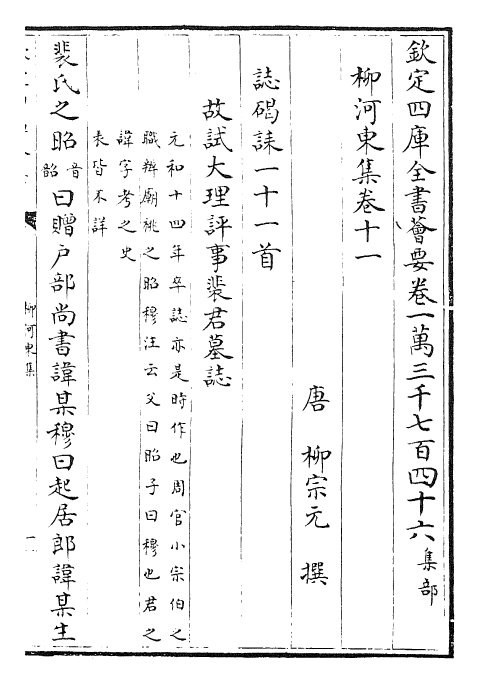 欽定四庫全書薈要卷一萬三千七百四十六 集部
柳河東集卷十一
唐 柳宗元 撰
誌碣誄一十一首
故試大理評事裴君墓誌
元和十四年卒誌亦是時作也周官小宗伯之
職辨廟祧之昭穆注云父曰昭子曰穆也君之
諱字考之史
表皆不詳
裴氏之昭音韶曰贈户部尚書諱某穆曰起居郎諱某生
柳河東集
一